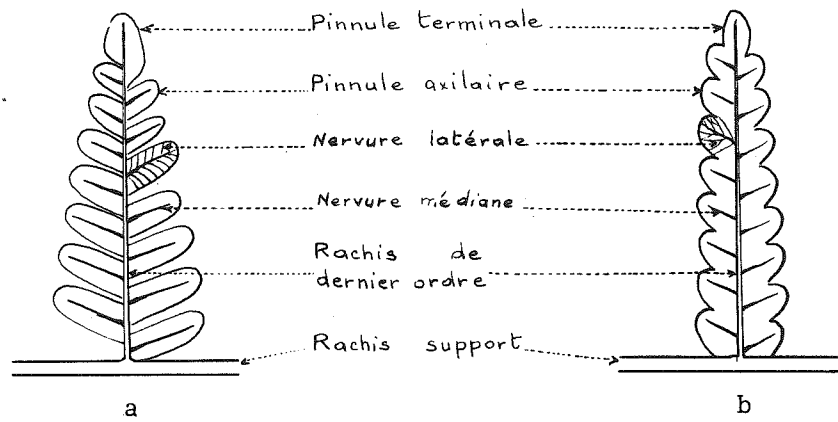 Pinnule terminale
Pinnule axilaire
Nervure latérale
Nervure médiane
Rachis de
dernier ordre
Rachis support
a
b